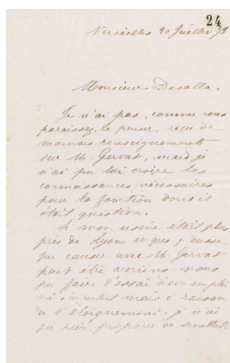 24
Versailles 20 Juillet 73
Monsieur
Je n'ai pas, comme vous
paraissez le penser, reçu de
mauvais renseignements
sur M. Gervat, mais je
n'ai pu lui croire les
connaissances nécessaires
pour la fonction dont il
était question.
mon usine était plus
près de Lyon et que je
causer avec M. Gervat
peut être aurions nous
pu faire l'essai d'un emploi
mais à raison
de l'éloignement, je n'ai
pu rien proposer